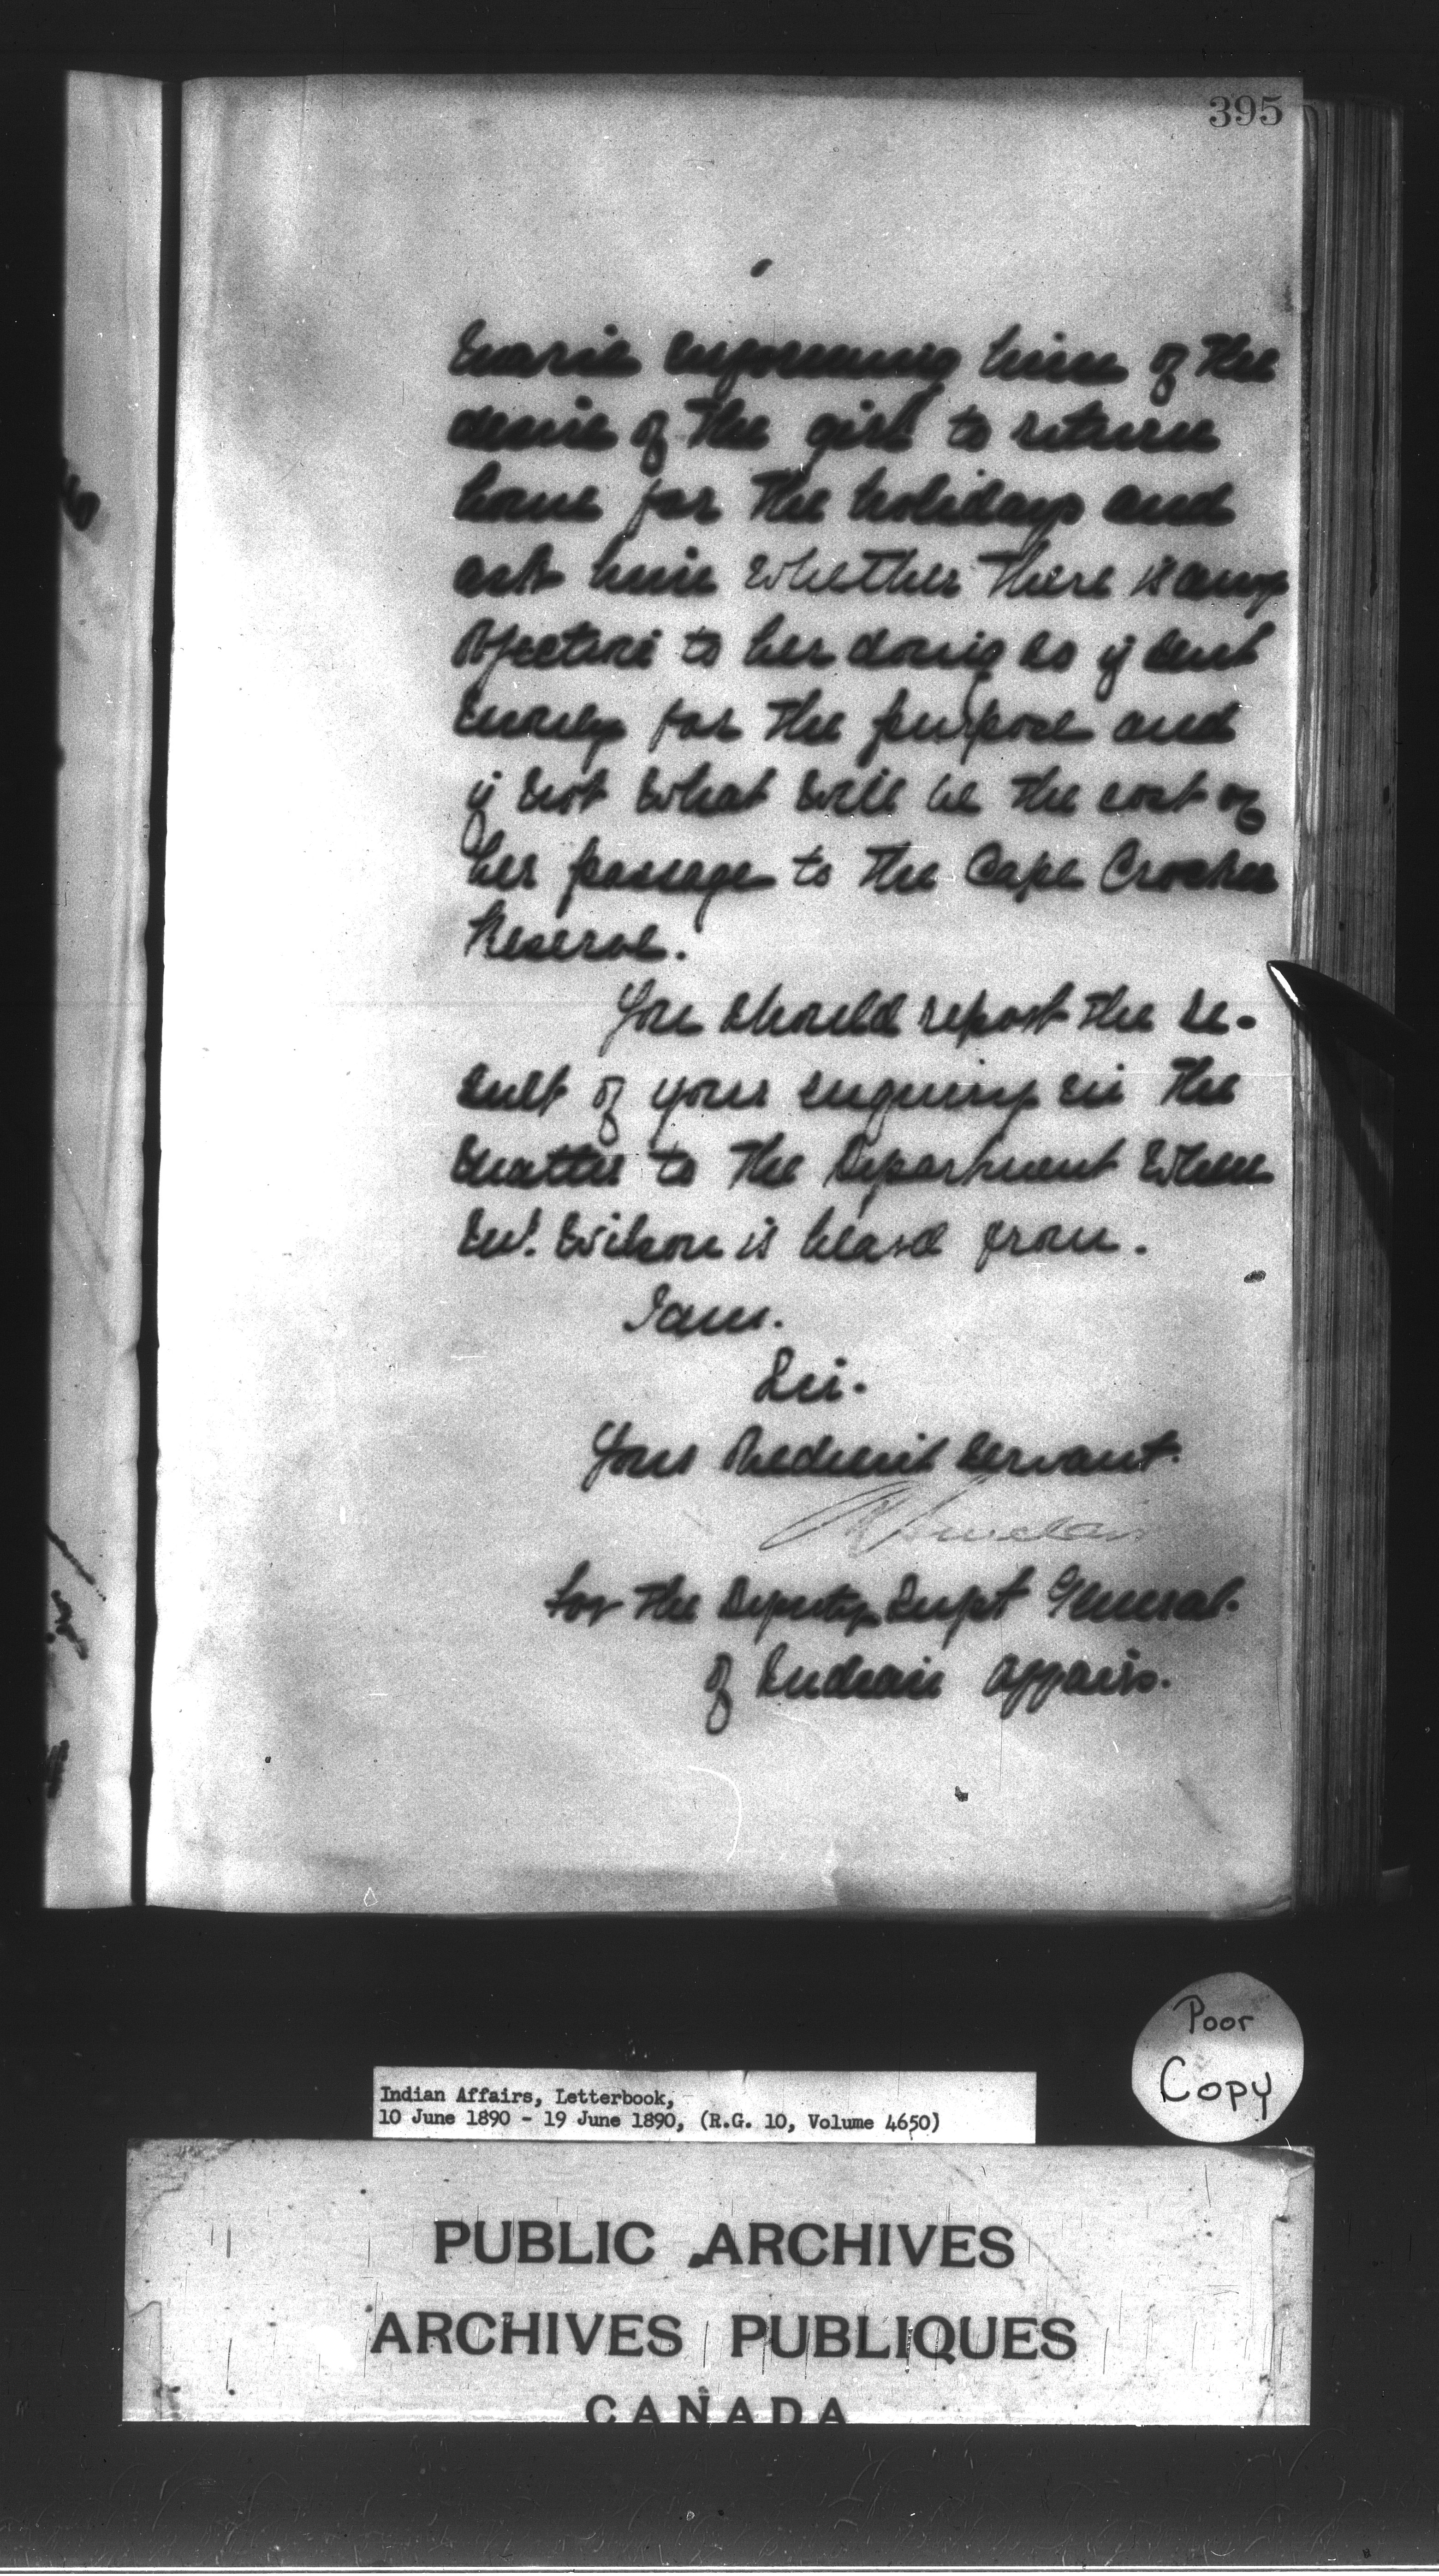 395
Marie informing him of the
desire of the girl to return
home for the holidays and
ask him whether there is any
objection to her doing so if sent
money for the purpose and
if not what will be the cost of
her passage to the Cape Croker
Reserve.
You should report the re-
sult of your enquiry in the
matter to the Department when
Mr. Wilson is heard from.
I am.
Sir.
Your Obedient Servant.
for the Deputy Supt General.
of Indian Affairs.
Poor
Copy
Indian Affairs, Letterbook,
10 June 1890 - 19 June 1890, (R.G. 10, Volume 4650)
PUBLIC ARCHIVES
ARCHIVES PUBLIQUES
CANADA